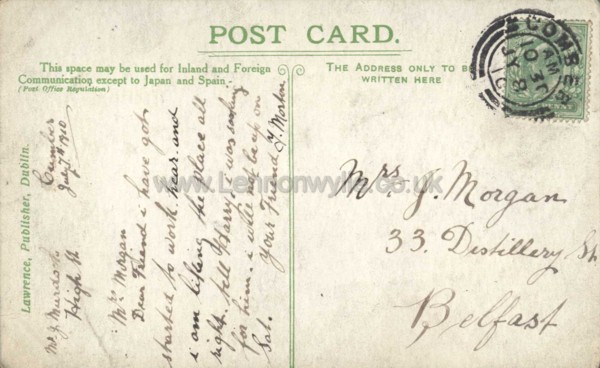 POST CARD.
This space may be used for Inland and Foreign
Communication except to Japan and Spain -
(Post Office Regulation)
THE ADDRESS ONLY TO B
WRITTEN HERE
Lawrence, Publisher, Dublin.
Mr J. Murdoch
High St
Cumber
July 7th 1910
Mrs Morgan
Dear Friend i have got
started to work hear. and
i am liking the place all
right. tell Harry i was
for him. i will be up on
Sat. your Friend J. Morton
Mrs. J. Morgan
33. Distillery St
Belfast
COMBER
AM
10 30
JY 8
10
www.Lennonwylie.co.uk